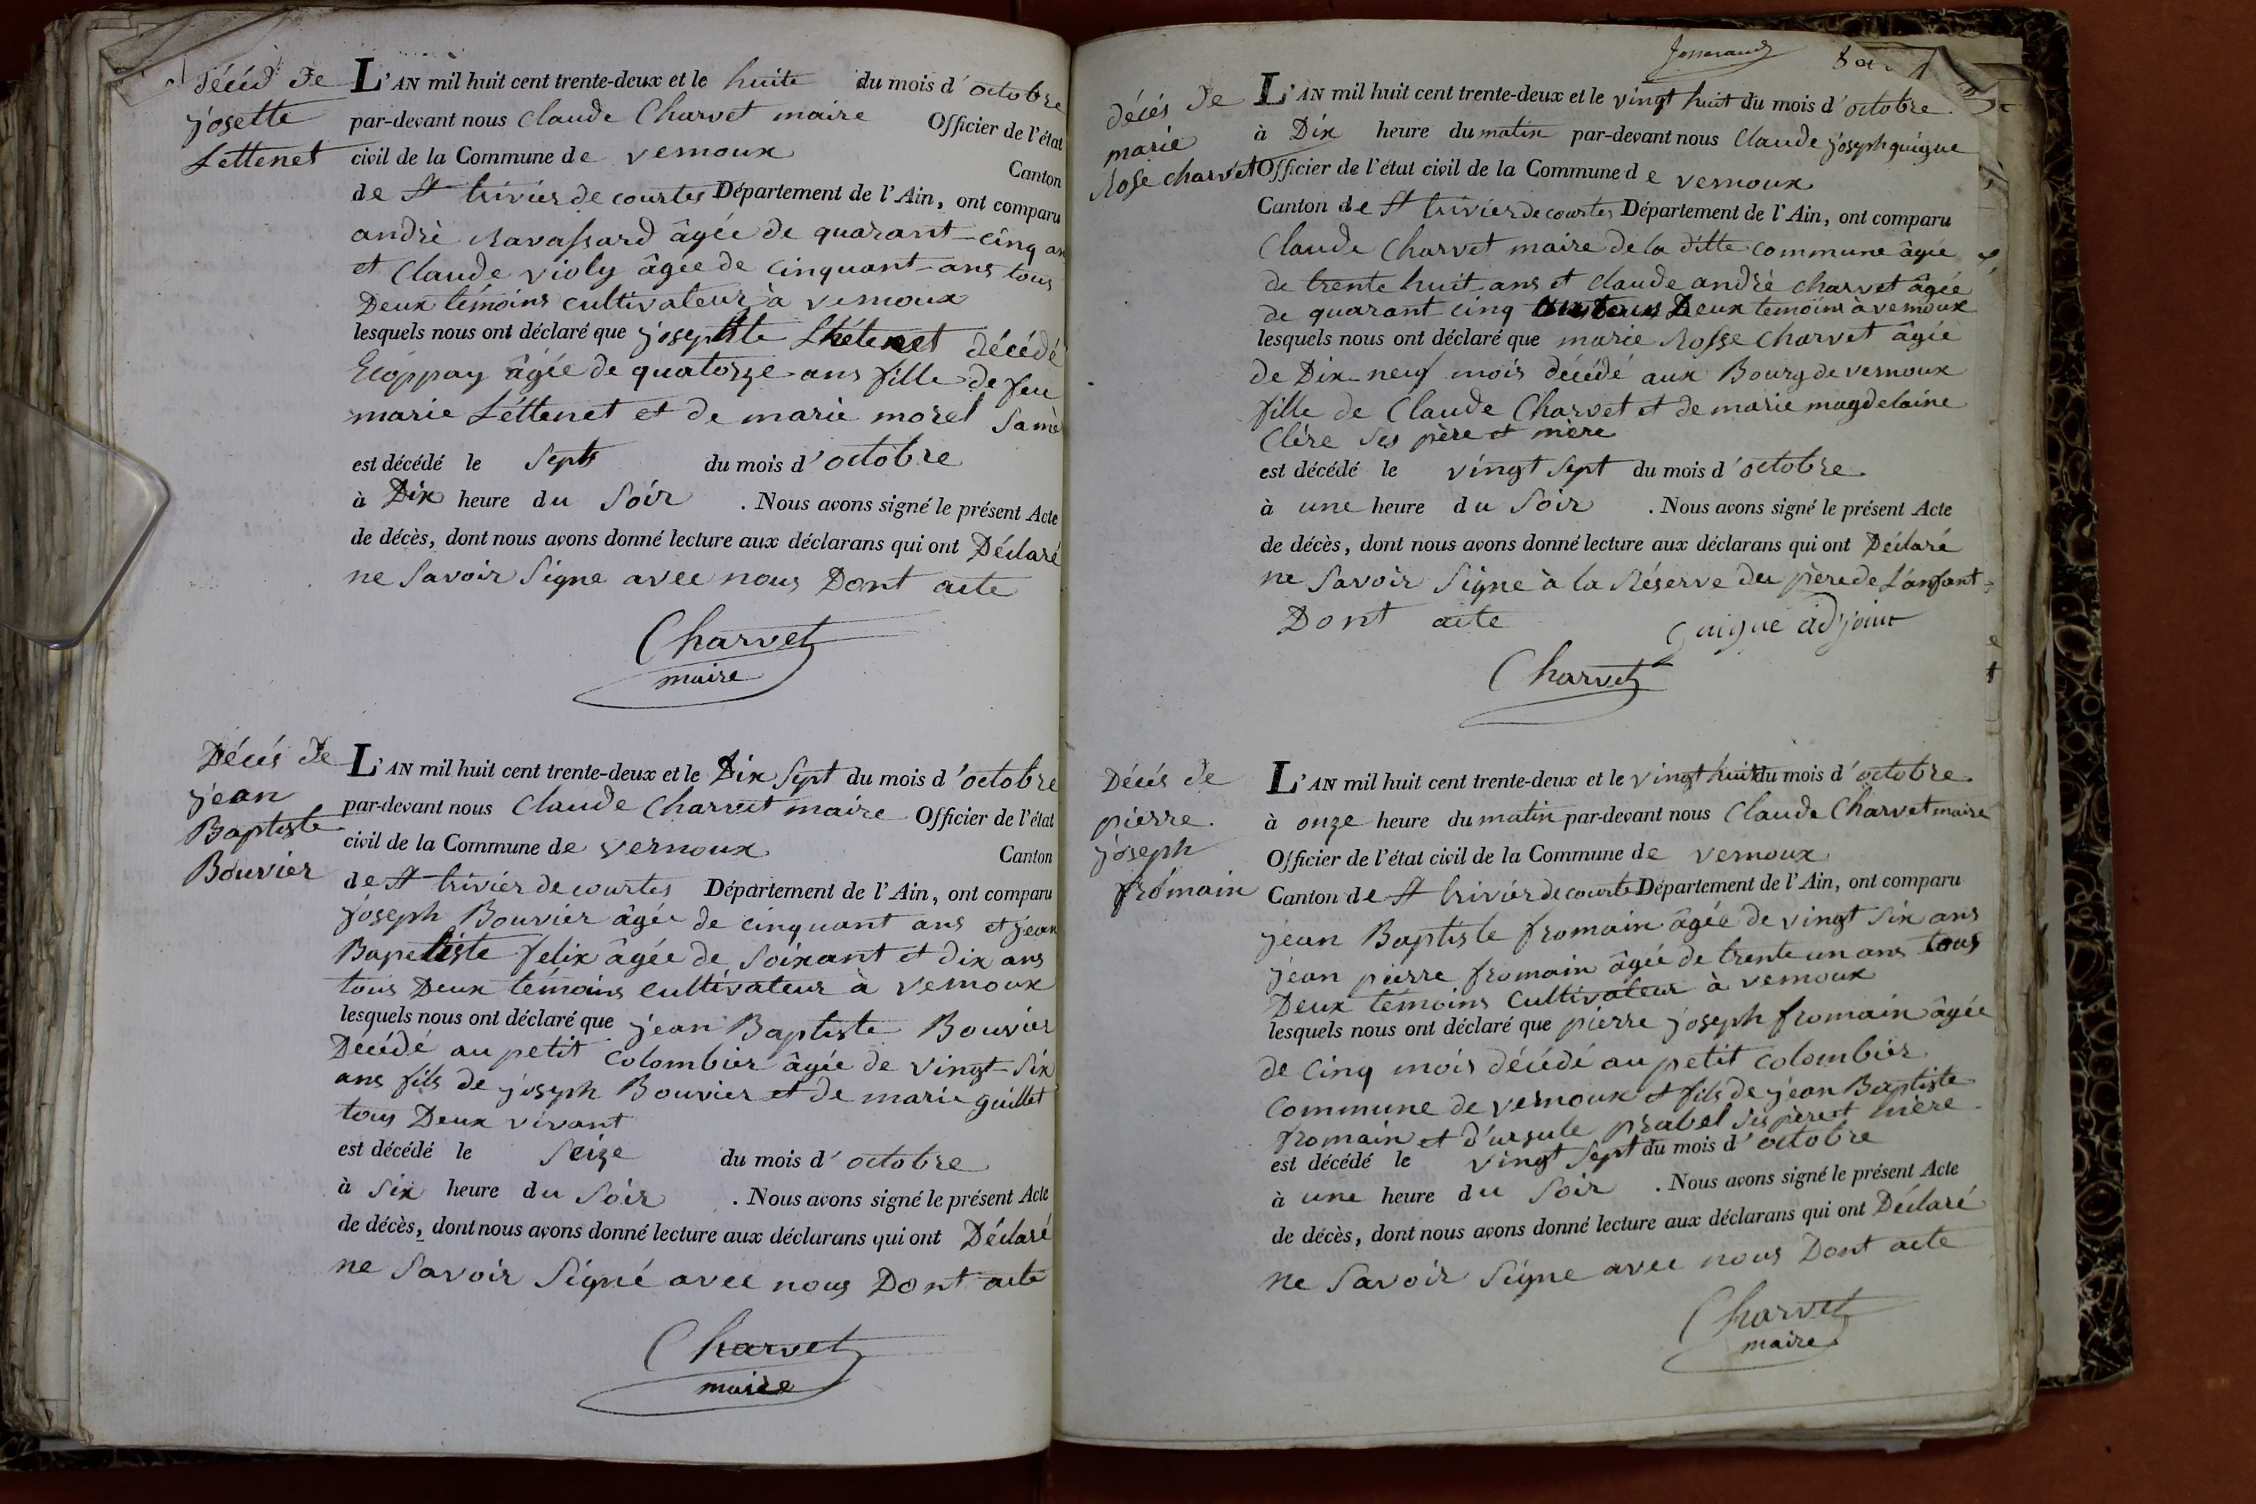 décéd de
josette
Lettenet
L'AN mil huit cent trente-deux et le huite du mois d'octobre
par-devant nous Claude Charvet maire Officier de l'état
civil de la Commune de vernoux
Canton
de St trivier de courtes Département de l'Ain, ont comparu
andrè Ravassard âgée de quarant-cinq an
et Claude violy âgée de cinquant-ans tous
Deux témoins cultivateur à vernoux
lesquels nous ont déclaré que décédé
âgée de quatorze ans fille de feu
marie Léttenet et de marie morel sa mè
est décédé le Sept du mois d'octobre
à Dix heure du Soir . Nous avons signé le présent Acte
de décès, dont nous avons donné lecture aux déclarans qui ont Déclaré
ne Savoir Signe avec nous Dont acte
Charvet
maire
Décés de
jean
Baptiste
Bouvier
L'AN mil huit cent trente-deux et le Dix Sept du mois d'octobre
par-devant nous Claude Charvet maire Officier de l'état
civil de la Commune de vernoux
Canton
de St trivier de courtes Département de l'Ain, ont comparu
joseph Bouvier âgée de cinquant ans et jean
Bapetiste felix âgée de Soixant et dix ans
tous Deux témoins cultivateur à vernoux
lesquels nous ont déclaré que jean Baptiste Bouvier
Décédé au petit Colombier âgée de vingt-Six
ans fils de joseph Bouvier et de marie guillet
tous Deux vivant
est décédé le Seize du mois d'octobre
à Six heure du Soir . Nous avons signé le présent Acte
de décès, dont nous avons donné lecture aux déclarans qui ont Déclaré
ne Savoir Signé avec nous Dont acte
Charvet
maire
décés de
marie
Rose charvet
L'AN mil huit cent trente-deux et le vingt huit du mois d'octobre
à Dix heure du matin par-devant nous Claude joseph guigue
Officier de l'état civil de la Commune de vernoux
Canton de St trivier de courtes Département de l'Ain, ont comparu
Claude Charvet maire de la ditte commune âgée
de trente huit ans et claude andrè charvet âgée
de quarant cinq ans tous Deux temoins à vernoux
lesquels nous ont déclaré que marie Rosse Charvet âgée
de Dix-neuf mois décédé aux Bourg de vernoux
fille de Claude Charvet et de marie magdelaine
Clére Ses père et mère
est décédé le vingt Sept du mois d'octobre
à une heure du Soir . Nous avons signé le présent Acte
de décès, dont nous avons donné lecture aux déclarans qui ont Déclaré
ne Savoir Signe à la Réserve du père de L'anfant
Dont acte
guigue adjoint
Charvet
Décés de
pierre
joseph
fromain
L'AN mil huit cent trente-deux et le vingt huit du mois d'octobre
à onze heure du matin par-devant nous Claude Charvet maire
Officier de l'état civil de la Commune de vernoux
Canton de St trivier de courte Département de l'Ain, ont comparu
jean Baptiste fromain âgée de vingt Six ans
jean pierre fromain âgée de trente un ans tous
Deux témoins Cultivateur à vernoux
lesquels nous ont déclaré que pierre joseph fromain âgée
de Cinq mois décédé au petit colombier
Commune de vernoux et fils de jean Baptiste
fromain et d'ursule prabel Ses père et mère
est décédé le vingt Sept du mois d'octobre
à une heure du Soir . Nous avons signé le présent Acte
de décès, dont nous avons donné lecture aux déclarans qui ont Déclaré
ne Savoir Signe avec nous Dont acte
Charvet
maire